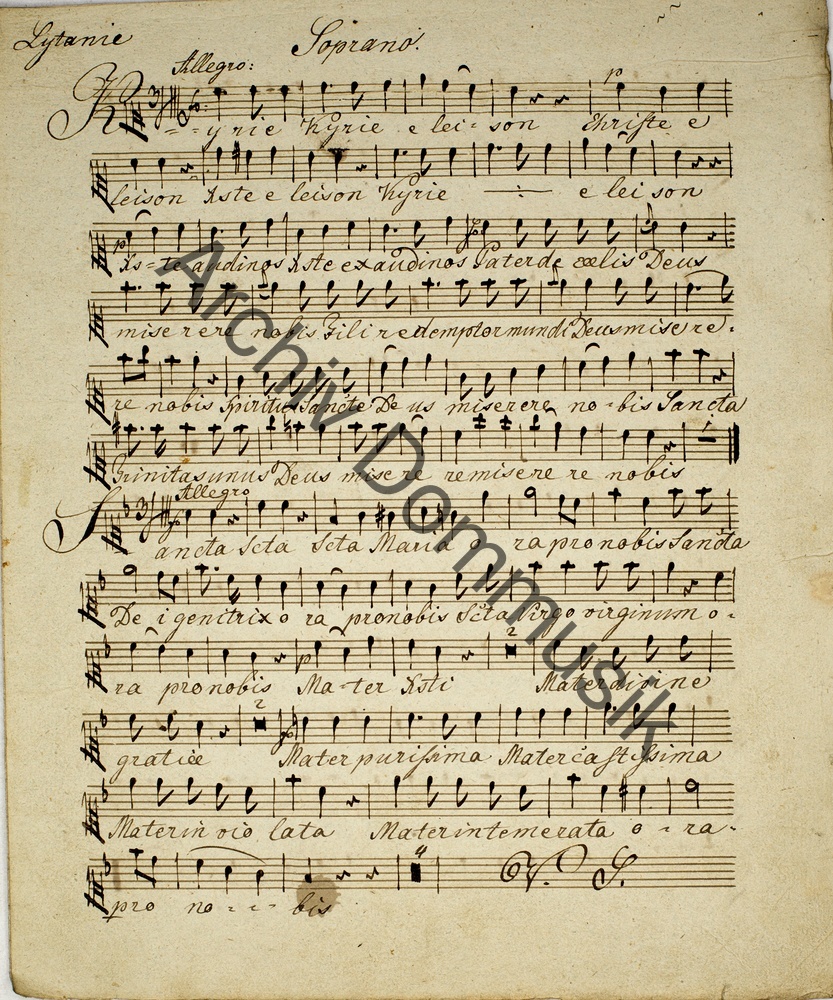 Lytanie Soprano.
Allegro:
Kyrie Kyrie e lei- son Christe e
leison Xste e leison Kyrie e lei son
Xs-te audinos Xste exaudinos Pater de cœlis Deus
mise rere nobis Fili redemptor mundi Deus mise re-
re nobis Spiritus Sancte De us miserere no-bis Sancta
Trinitas unus Deus mise re re misere re nobis
Allegro
Sancta Scta Scta Maria o ra pro nobis Sancta
De i genitrix o ra pro nobis Scta Virgo virginum o-
ra pro nobis Ma-ter Xsti Mater divine
gratiæ Mater purissima Mater castissima
Mater in vio lata Mater intemerata o - ra-
pro no - - - bis V. S.
Archiv Dommusik